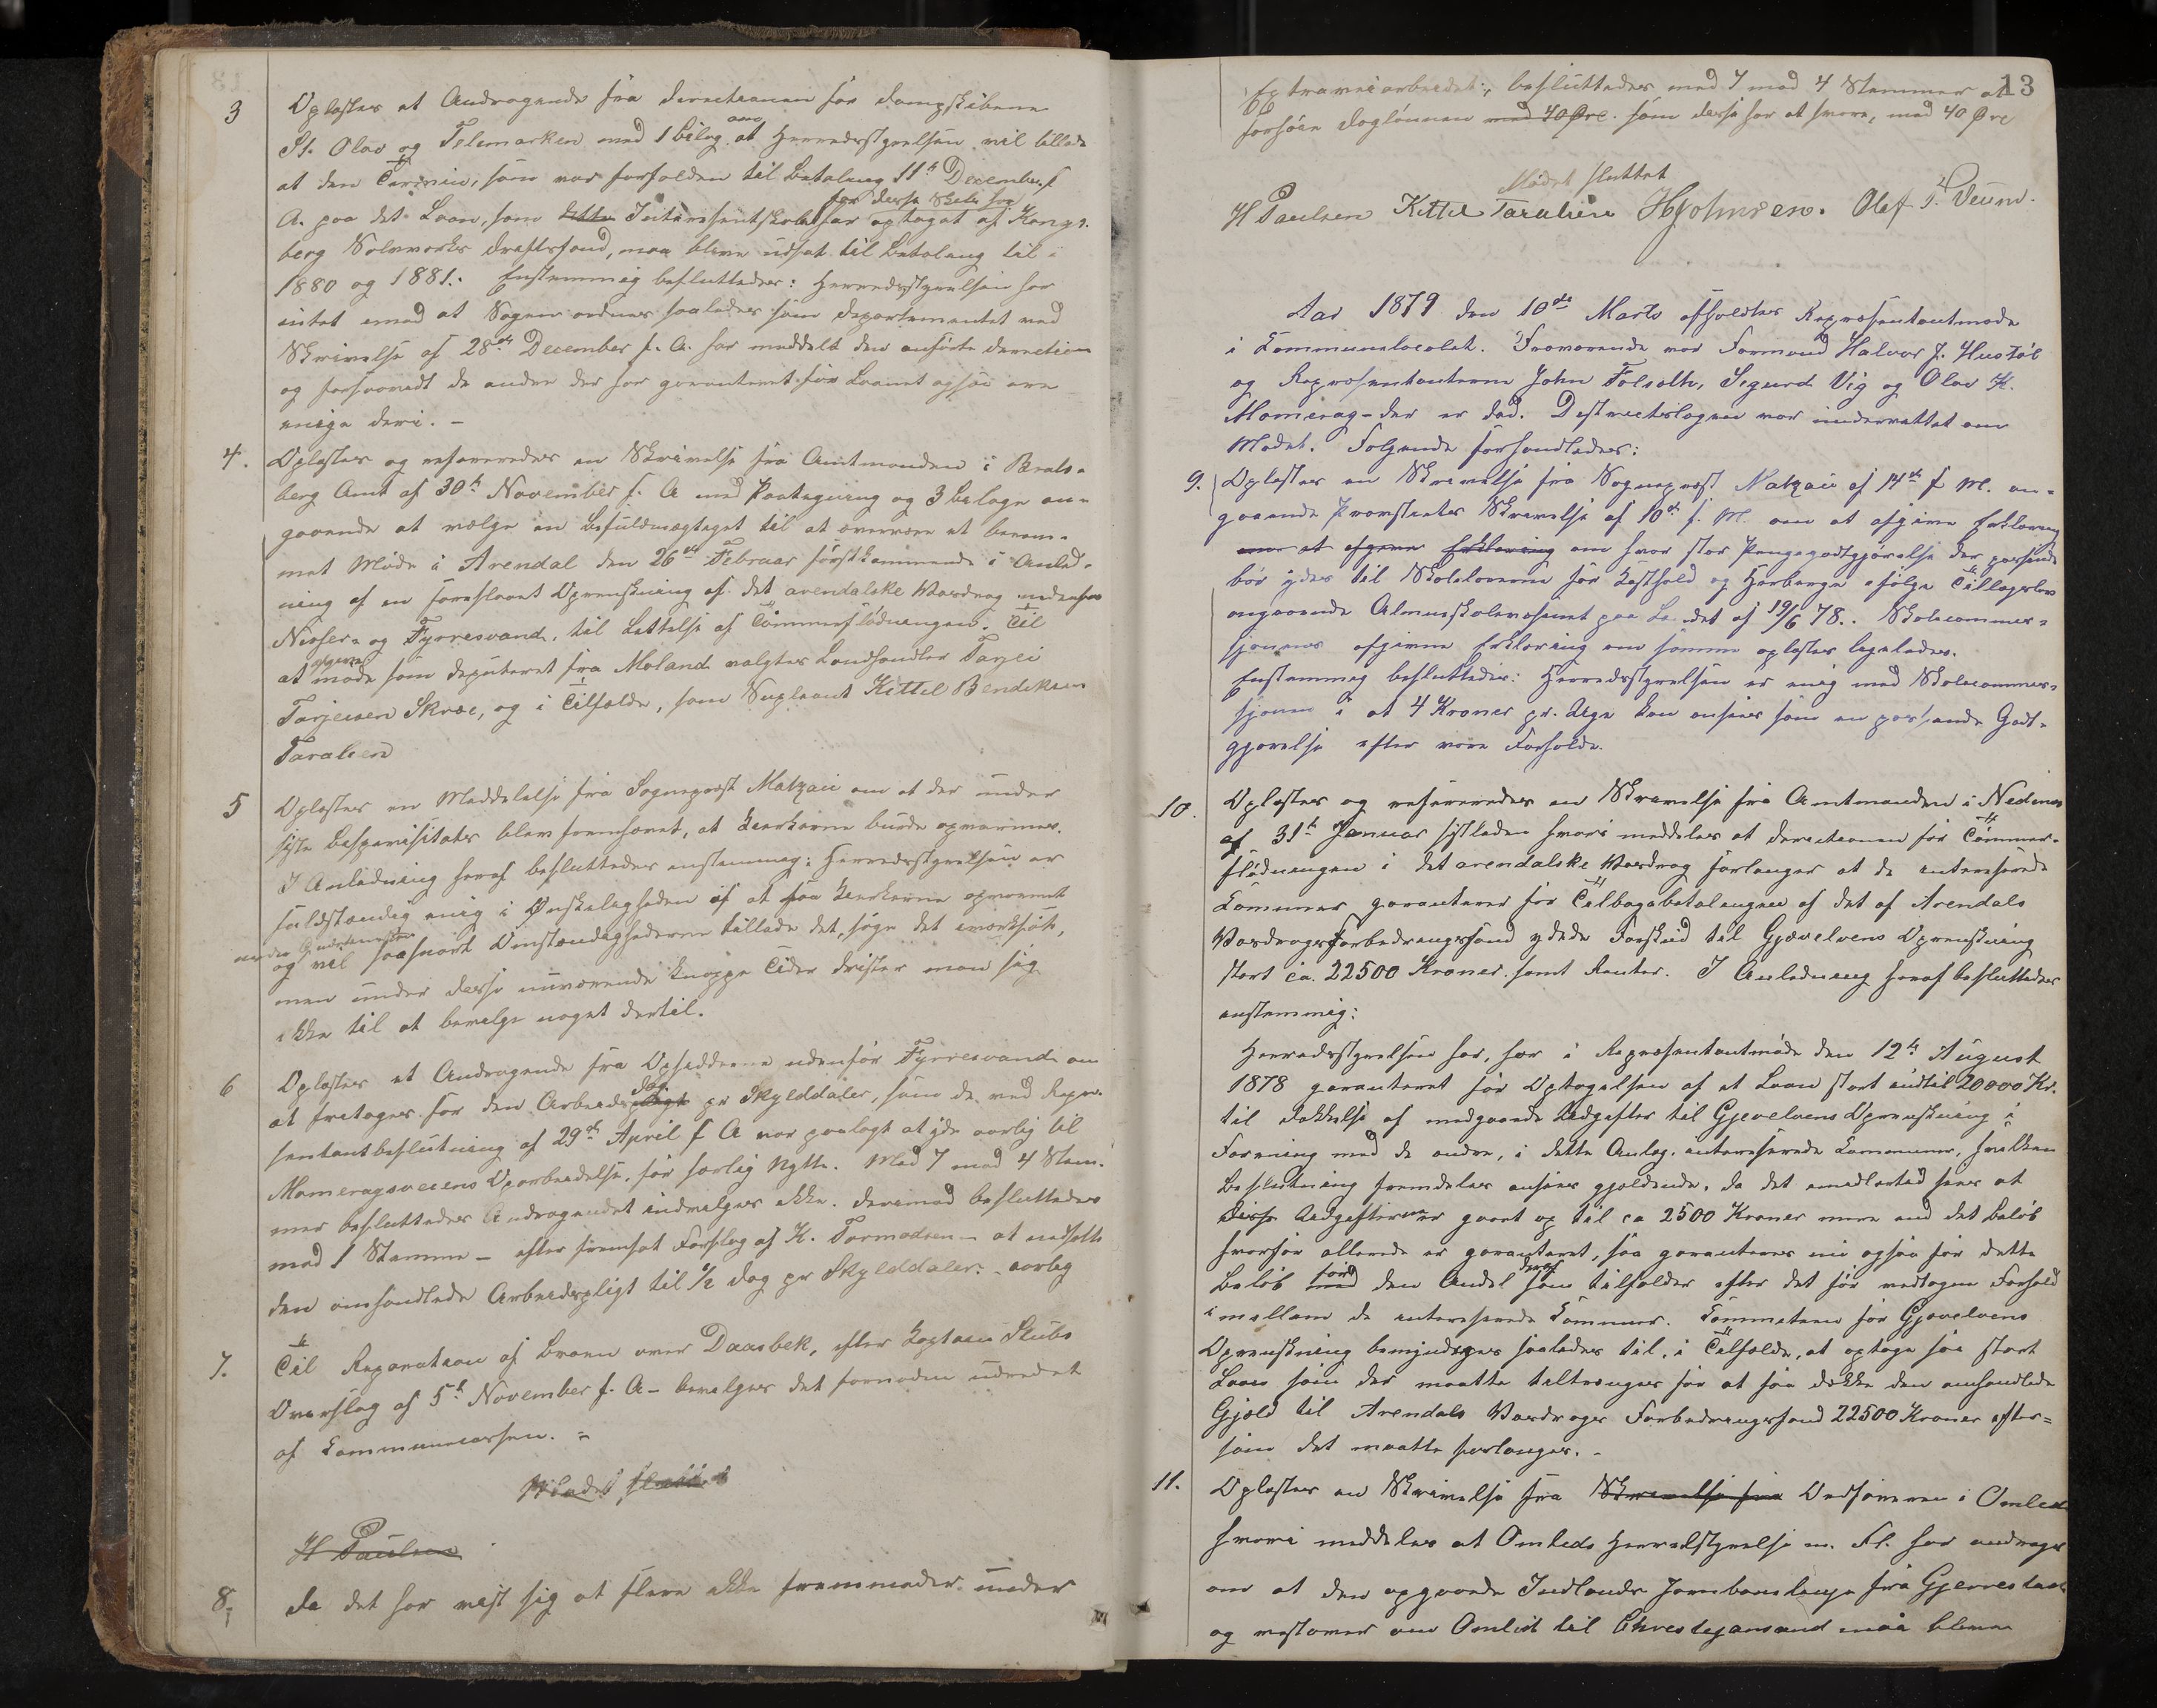 3 Oplæstes et Andragende fra Directionen for Dampskibene
St. Olav og Telemarken med 1 Bilag om at Herredsstyrelsen vil tillade
at den Termin, som var forfalden til Betaling 11te December f.
A. paa det Laan, som dette Interesentskab for disse Skibe har optaget af Kongs-
berg Sølvverks Driftsfond, maa blive udsat til Betaling til i
1880 og 1881. Enstemmig besluttedes: Herredsstyrelsen har
intet imod at Sagen ordnes saaledes som Departementet ved
Skrivelse af 28de December f. A. har meddelt den anførte Direction
og forsaavidt de andre der har garanteret for Laanet ogsaa ere
enige deri. –
4. Oplæstes og refereredes en Skrivelse fra Amtmanden i Brats-
berg Amt af 30te November f. A med Paategning og 3 Bilage an-
gaaende at vælge en Befuldmægtiget til at overvære et beram-
met Møde i Arendal den 26de Februar førstkommende i Anled-
ning af en foreslaaet Oprenskning af det arendalske Vasdrag nedenfor
Nisser- og Fyrresvand, til Lettelse af Tømmerflødningen. Til
at møde som Deputeret fra Moland valgtes Landhandler Tarjei
Tarjeisen Skree, og i Tilfælde, som Supleant Kittil Bendiksen
Taraldlien
5 Oplæstes en Meddelelse fra Sogneprest Matzau om at der under
siste Bispevisitats blev fremhævet, at Kirkerne burde opvarmes.
I Anledning heraf besluttedes enstemmig: Herredsstyrelsen er
fuldstændig enig i Ønskeligheden af at faa Kirkerne opvarmet
og vil saasnart Omstændighederne tillade det, søge det iværksat,
men under disse nuværende knappe Tider drister man sig
ikke til at bevilge noget dertil.
6 Oplæstes et Andragende fra Opsidderne udenfor Fyrresvand om
at fritages for den Arbeidsdag pligt pr Skylddaler, som de ved Repr-
sentantbeslutning af 29de April f A var paalagt at yde aarlig til
Momeragsveiens Oparbeidelse, for særlig Nytte. Med 7 mod 4 Stem-
mer besluttedes Andragendet indvilges ikke. Derimod besluttedes
mod 1 Stemme – efter fremsat Forslag af K. Tarmodsen – at nedsette
den omhandlede Arbeidspligt til 1/2 Dag pr Skylddaler aarlig
7. Til Reparation af Broen over Daasbek, efter Kaptain Stubs
Overslag af 5te November f. A – bevilges det fornødne udredet
af Kommunecassen. –
Mødet sluttet
H Paulsen
8. Da det har vist sig at flere ikke fremmøder under
13
Extraveiarbeidet, besluttedes med 7 mod 4 Stemmer at
forhøie Daglønnen med 40 Øre som disse har at svare, med 40 Øre
Mødet sluttet
H Paulsen Kittil Taralien H Johnsen. Olef T. Veum.
Aar 1879 den 10de Marts afholdtes Repræsentantmøde
i Kommunelocalet. Fraværende var Formand Halvor J. Hustøl
og Repræsentanterne John Folsæth, Sigurd Vig og Olav K.
Momerag – der er død. Destrictslægen var underrettet om
Mødet. Følgende forhandledes:
9. Oplæstes en Skrivelse fra Sogneprest Matzau af 14de f. M. an-
gaaende Provstiets Skrivelse af 10de f. M. om at afgive Erklæring
om at afgive Erklæring om hvor stor Pengegodtgjørelse der passende
bør ydes til Skolelærerne for Kosthold og Herberge ifølge Tillægslov
angaaende Almueskolevæsenet paa Landet af 19/6 78. Skolecommis-
sjonens afgivne Erklæring om samme oplæstes ligeledes.
Enstemmig besluttedes: Herredsstyrelsen er enig med Skolecommis-
sjonen i at 4 Kroner pr. Uge kan ansees som en passende Godt-
gjørelse efter vore Forholde.
10. Oplæstes og refereredes en Skrivelse fra Amtmanden i Nedenes
af 31te Januar sistleden hvori meddeles at Directionen for Tømmer-
flødningen i det arendalske Vasdrag forlanger at de interesserede
Kommuner garanterer for Tilbagebetalingen af det af Arendals
Vasdragsforbedringsfond ydede Forskud til Gjøvelvens Oprenskning
stort ca. 22500 Kroner samt Renter. I Anledning heraf besluttedes
enstemmig:
Herredsstyrelsen har, her i Repræsentantmøde den 12te August
1878 garanteret for Optagelsen af et Laan stort indtil 20000 Kr.
til Dækkelse af medgaaede Udgifter til Gjevelvens Oprenskning i
Forening med de andre, i dette Anlæg interesserede Kommuner, hvilken
Beslutning fremdeles ansees gjældende. Da det imidlertid sees at
disse Udgifter er gaaet op til ca 2500 Kroner mere end det Beløb
hvorfor allerede er garanteret, saa garanteres nu ogsaa for dette
Beløb med for den Andel deraf som tilfalder efter det før vedtagne Forhold
imellem de interesserede Kommuner. Kommiteen for Gjøvelvens
Oprenskning bemyndiges saaledes til, i Tilfælde, at optage saa stort
Laan som der maatte tiltrænges for at faa dække den omhandlede
Gjæld til Arendals Vasdrags Forbedringsfond 22500 Kroner efter-
som det maatte forlanges. –
11. Oplæstes en Skrivelse fra Skrivelse fra Ordføreren i Omlid
hvori meddeles at Omlids Herredsstyrelse m. Fl. har andraget
om at den opgaaede Indlands Jernbanelinje fra Gjerrestad
og vestover om Omlid til Christjansand maa blive